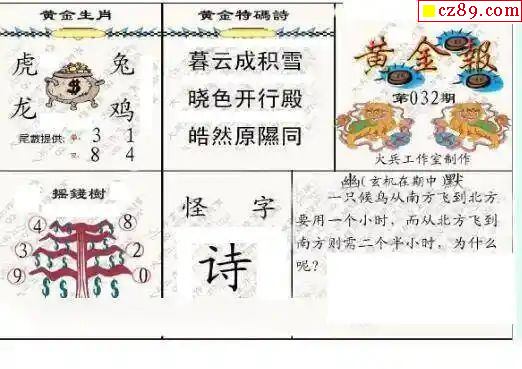 cz89.com
黄金生肖
虎 兔
龙 鸡
尾數提供: 3 1
8 4
黄金特碼詩
暮云成积雪
晓色开行殿
皓然原隰同
黄金報
第032期
大兵工作室制作
摇錢樹
4 8
3 2
9 0
怪 字
诗
幽(玄机在期中 默
一只候鸟从南方飞到北方
要用一个小时，而从北方飞到
南方则需二个半小时，为什么
呢？